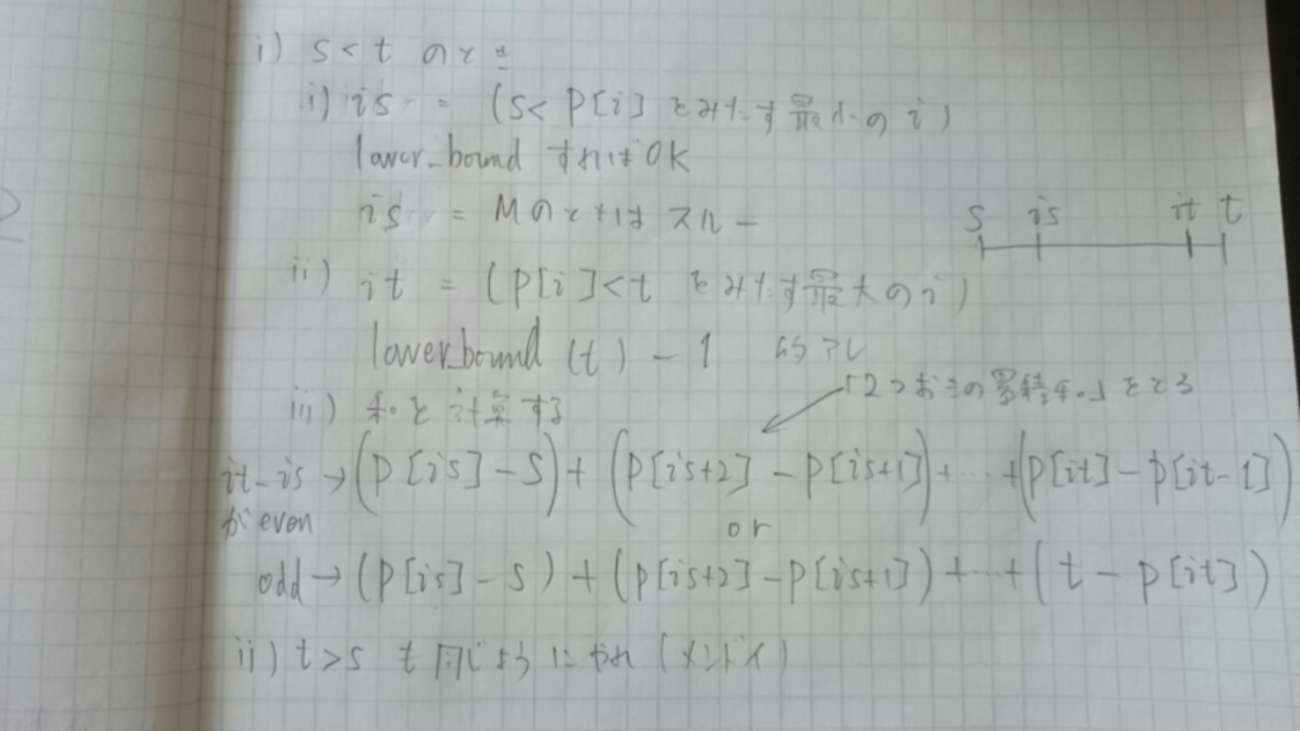 i) s < t のとき
i) is = (s < P[i] をみたす最小の i)
lower_bound すれば OK
is = M のときは スルー
s is it t
ii) it = (P[i] < t をみたす最大の i)
lower_bound (t) - 1
「2つおきの累積和」をとる
iii) 和を計算する
it - is → (P[is] - S) + (P[is+2] - P[is+1]) + ... + (P[it] - P[it-1])
が even
or
odd → (P[is] - s) + (P[is+2] - P[is+1]) + ... + (t - P[it])
ii) t > s t 同じようにやれ (メンドイ)